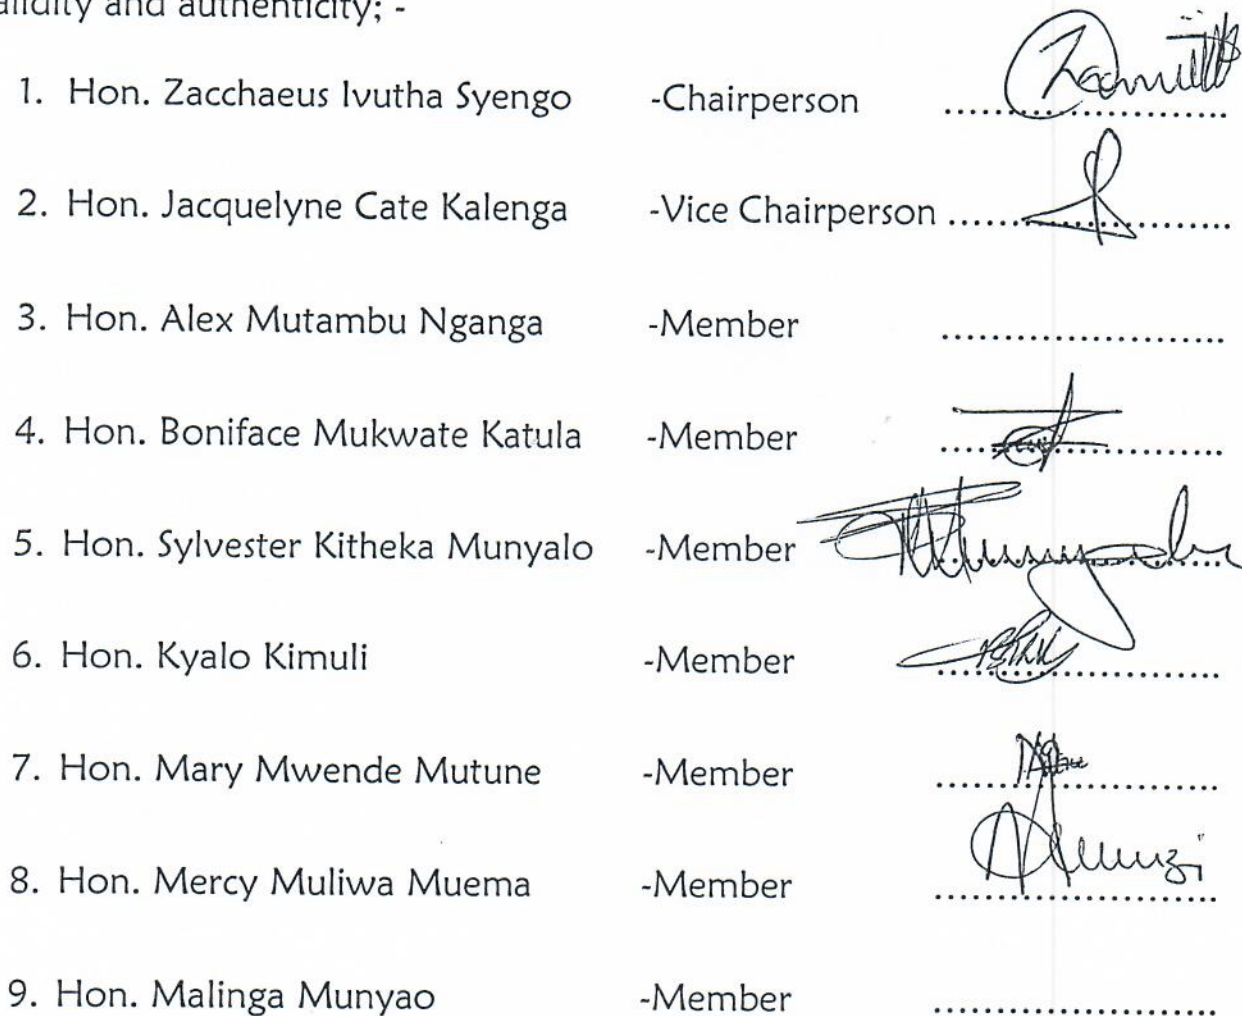 alidity and authenticity; -
1. Hon. Zacchaeus Ivutha Syengo -Chairperson ........................
2. Hon. Jacquelyne Cate Kalenga -Vice Chairperson ........................
3. Hon. Alex Mutambu Nganga -Member ........................
4. Hon. Boniface Mukwate Katula -Member ........................
5. Hon. Sylvester Kitheka Munyalo -Member ........................
6. Hon. Kyalo Kimuli -Member ........................
7. Hon. Mary Mwende Mutune -Member ........................
8. Hon. Mercy Muliwa Muema -Member ........................
9. Hon. Malinga Munyao -Member ........................